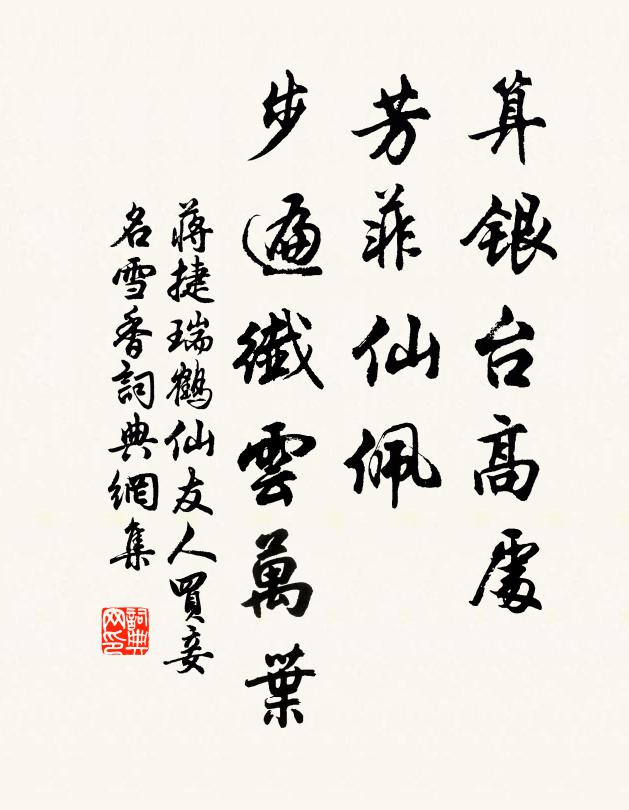 算銀台高處
芳菲仙佩
步遍纖雲萬葉
蔣捷瑞鶴仙友人買妾
名雪香詞典網集
詞典
网印